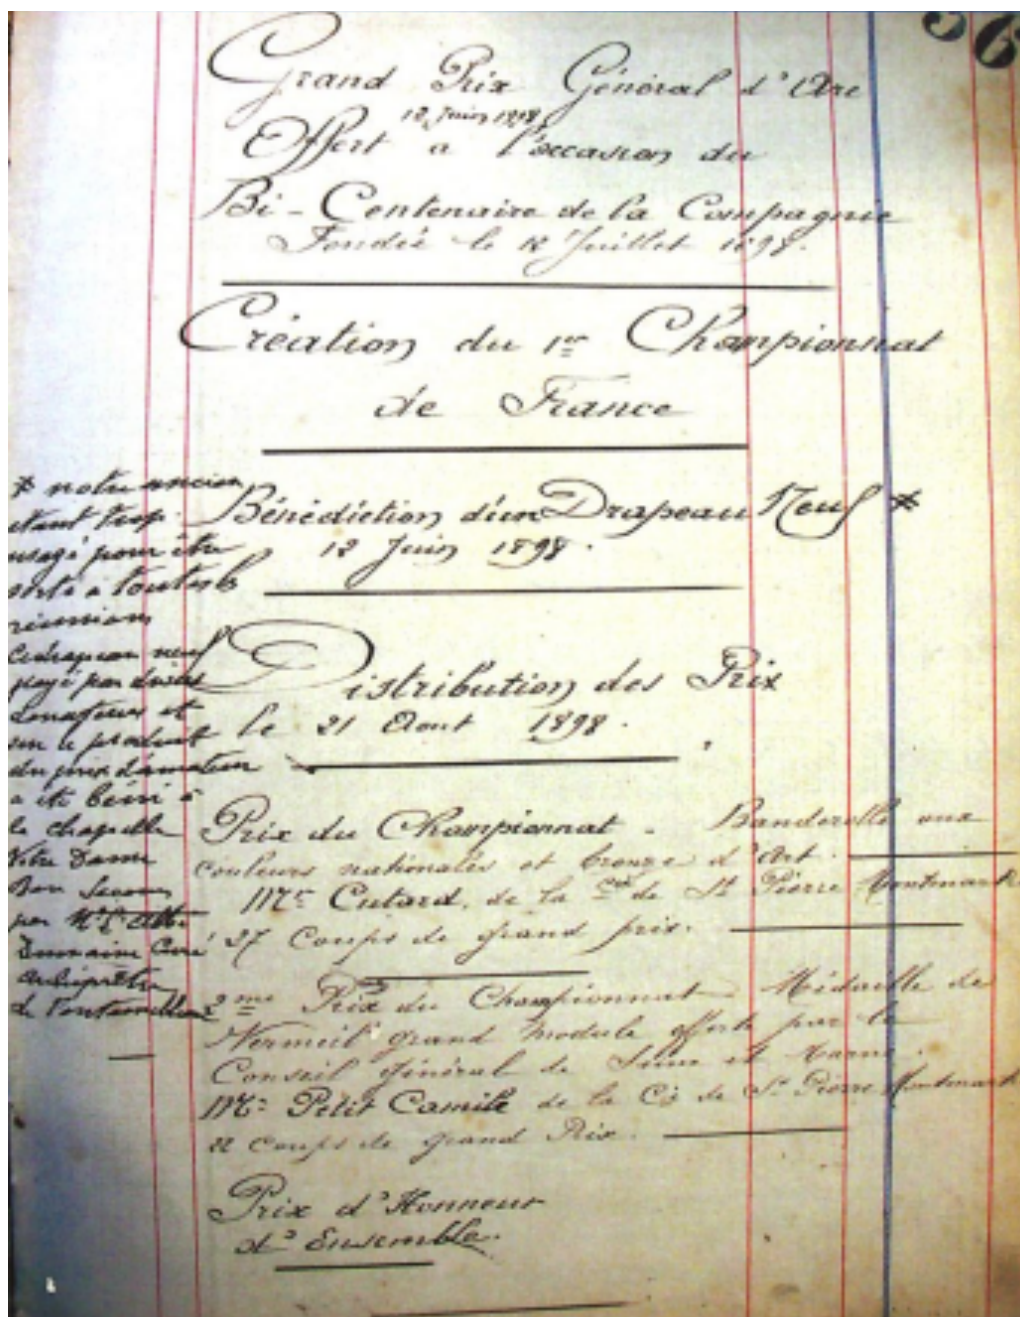 36
Grand Prix Général d'Arc
12 Juin 1898
Offert a l'occasion du
Bi-Centenaire de la Compagnie
Fondée le 12 Juillet 1698.
Création du 1er Championnat
de France
Bénédiction d'un Drapeau Neuf *
12 Juin 1898.
Distribution des Prix
le 21 Aout 1898.
Prix du Championnat. Banderolle aux
couleurs nationales et bronze d'Art.
Mr Cutard, de la Cie de St Pierre Montmart
27 Coups de grand prix.
2me Prix du Championnat Médaille de
Vermeil grand module offerte par le
Conseil général de Seine et Marne.
Mr Petit Camile de la Cie de St Pierre Montmart
22 coups de grand Prix.
Prix d'Honneur
d'Ensemble.
* notre ancien
étant trop
usagé pour être
à toutes les
réunions
ce drapeau neuf
payé par divers
donateurs et
le produit
du prix d'amateur
a été béni à
la chapelle
Notre Dame
Bon Secours
par Mr l'Abbé
Curé
archiprêtre
de Fontainebleau